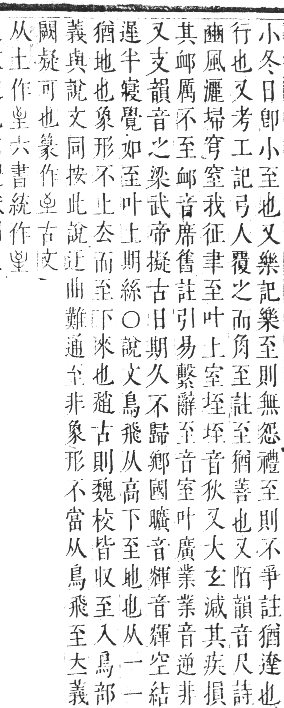 小冬日卽小至也又樂記樂至則無怨禮至則不爭註猶達也
行也又考工記弓人覆之而角至註至猶善也又陌韻音尺詩
豳風灑埽穹窒我征聿至叶上室垤垤音狄又大玄減其疾損
其卹厲不至卹音席舊註引易繫辭至音室叶廣業業音逆非
又支韻音之梁武帝擬古旧期久不歸鄕國曠音輝音輝空結
遲半寢覺如至叶上期絲〇說文鳥飛从高下至地也从一一
猶地也象形不上去而至下來也趙古則魏校皆収至入鳥部
義與說文同按此說迂曲難通至非象形不當从鳥飛至大義
闕疑可也篆作𦤳古文
从土作𡊏六書統作𡊏